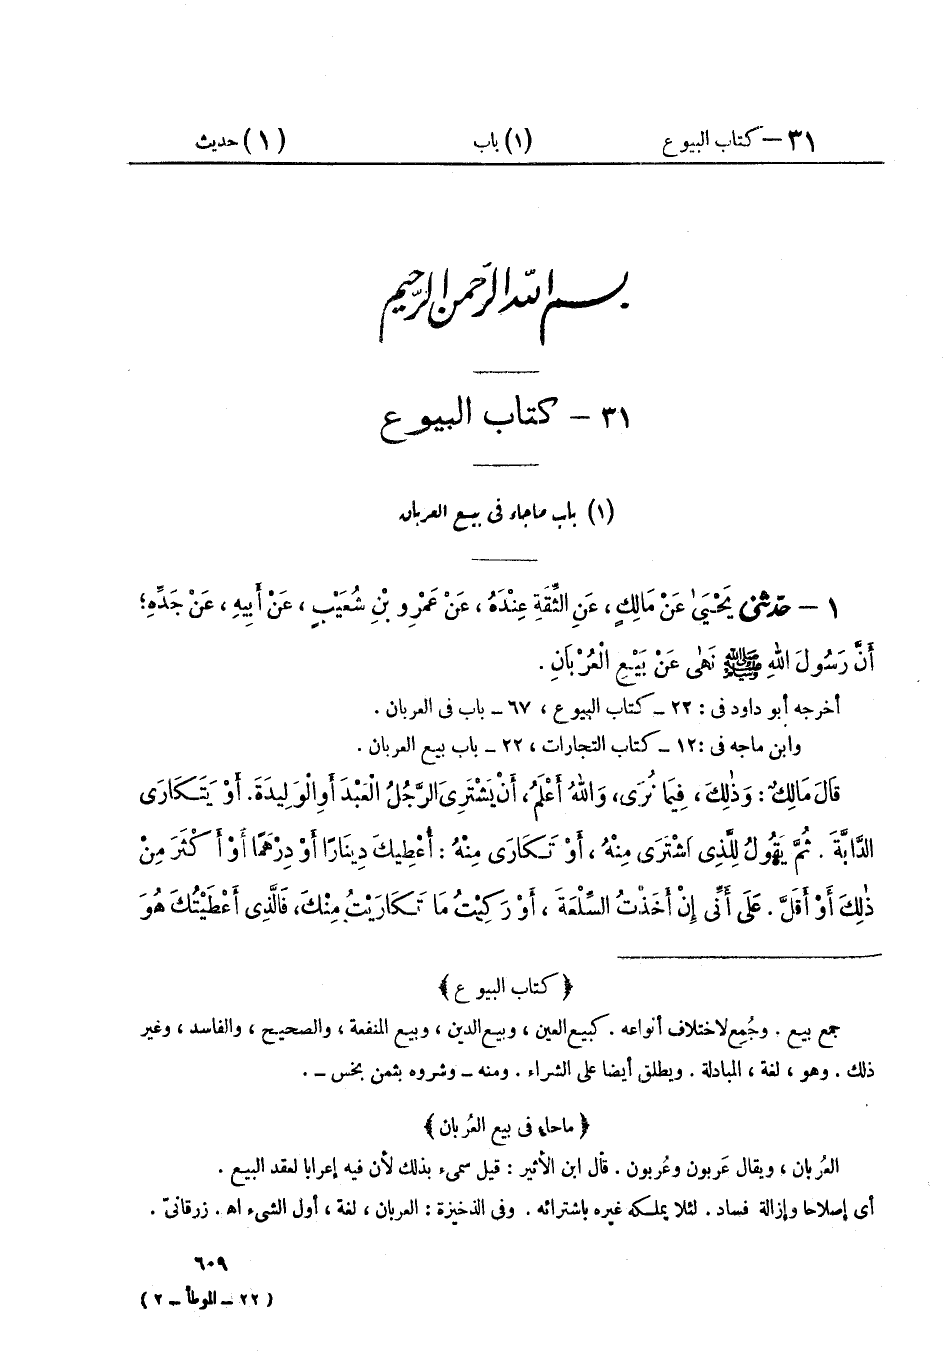 ٣١ – كتاب البيوع (١) باب (١) حديث
بسم الله الرحمن الرحيم
٣١ – كتاب البيوع
(١) باب ماجاء فى بيع العربان
١ – حدّثنى يَحْيَىٰ عَنْ مَالِكٍ ، عَنِ الثِّقَةِ عِنْدَهُ ، عَنْ عَمْرِو بْنِ شُعَيْبٍ ، عَنْ أَبِيهِ ، عَنْ جَدِّهِ ؛
أَنَّ رَسُولَ اللهِ ﷺ نَهَى عَنْ بَيْعِ الْعُرْبَانِ .
أخرجه أبو داود فى : ٢٢ – كتاب البيوع ، ٦٧ – باب فى العربان .
وابن ماجه فى : ١٢ – كتاب التجارات ، ٢٢ – باب بيع العربان .
قَالَ مَالِكٌ : وَذٰلِكَ ، فِيمَا نُرَى، وَاللهُ أَعْلَمُ، أَنْ يَشْتَرِىَ الرَّجُلُ الْعَبْدَ أَوِ الْوَلِيدَةَ. أَوْ يَتَكَارَى
الدَّابَّةَ . ثُمَّ يَقُولُ لِلَّذِى اشْتَرَى مِنْهُ ، أَوْ تَكَارَى مِنْهُ : أُعْطِيكَ دِينَارًا أَوْ دِرْهَمًا أَوْ أَكْثَرَ مِنْ
ذٰلِكَ أَوْ أَقَلَّ . عَلَى أَنِّى إِنْ أَخَذْتُ السِّلْعَةَ ، أَوْ رَكِبْتُ مَا تَكَارَيْتُ مِنْكَ، فَالَّذِى أَعْطَيْتُكَ هُوَ
﴿ كتاب البيوع ﴾
جمع بيع . وجُمِع لاختلاف أنواعه . كبيع العين ، وبيع الدين ، وبيع المنفعة ، والصحيح ، والفاسد ، وغير
ذلك . وهو ، لغة ، المبادلة . ويطلق أيضا على الشراء . ومنه – وشروه بثمن بخس – .
﴿ ماجاء فى بيع العُربان ﴾
العُربان ، ويقال عَربون وعُربون . قال ابن الأثير : قيل سمىء بذلك لأن فيه إعرابا لعقد البيع .
أى إصلاحا وإزالة فساد . لئلا يملكه غيره باشترائه . وفى الذخيرة : العربان ، لغة ، أول الشىء اه . زرقانىّ .
٦٠٩
( ٢٢ – الموطأ – ٢ )